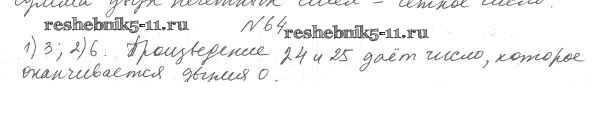 Сумма двух нечетных чисел – четное число.
reshebnik5-11.ru №64
reshebnik5-11.ru
1) 3; 2) 6. Произведение 24 и 25 даёт число, которое
оканчивается двумя 0.